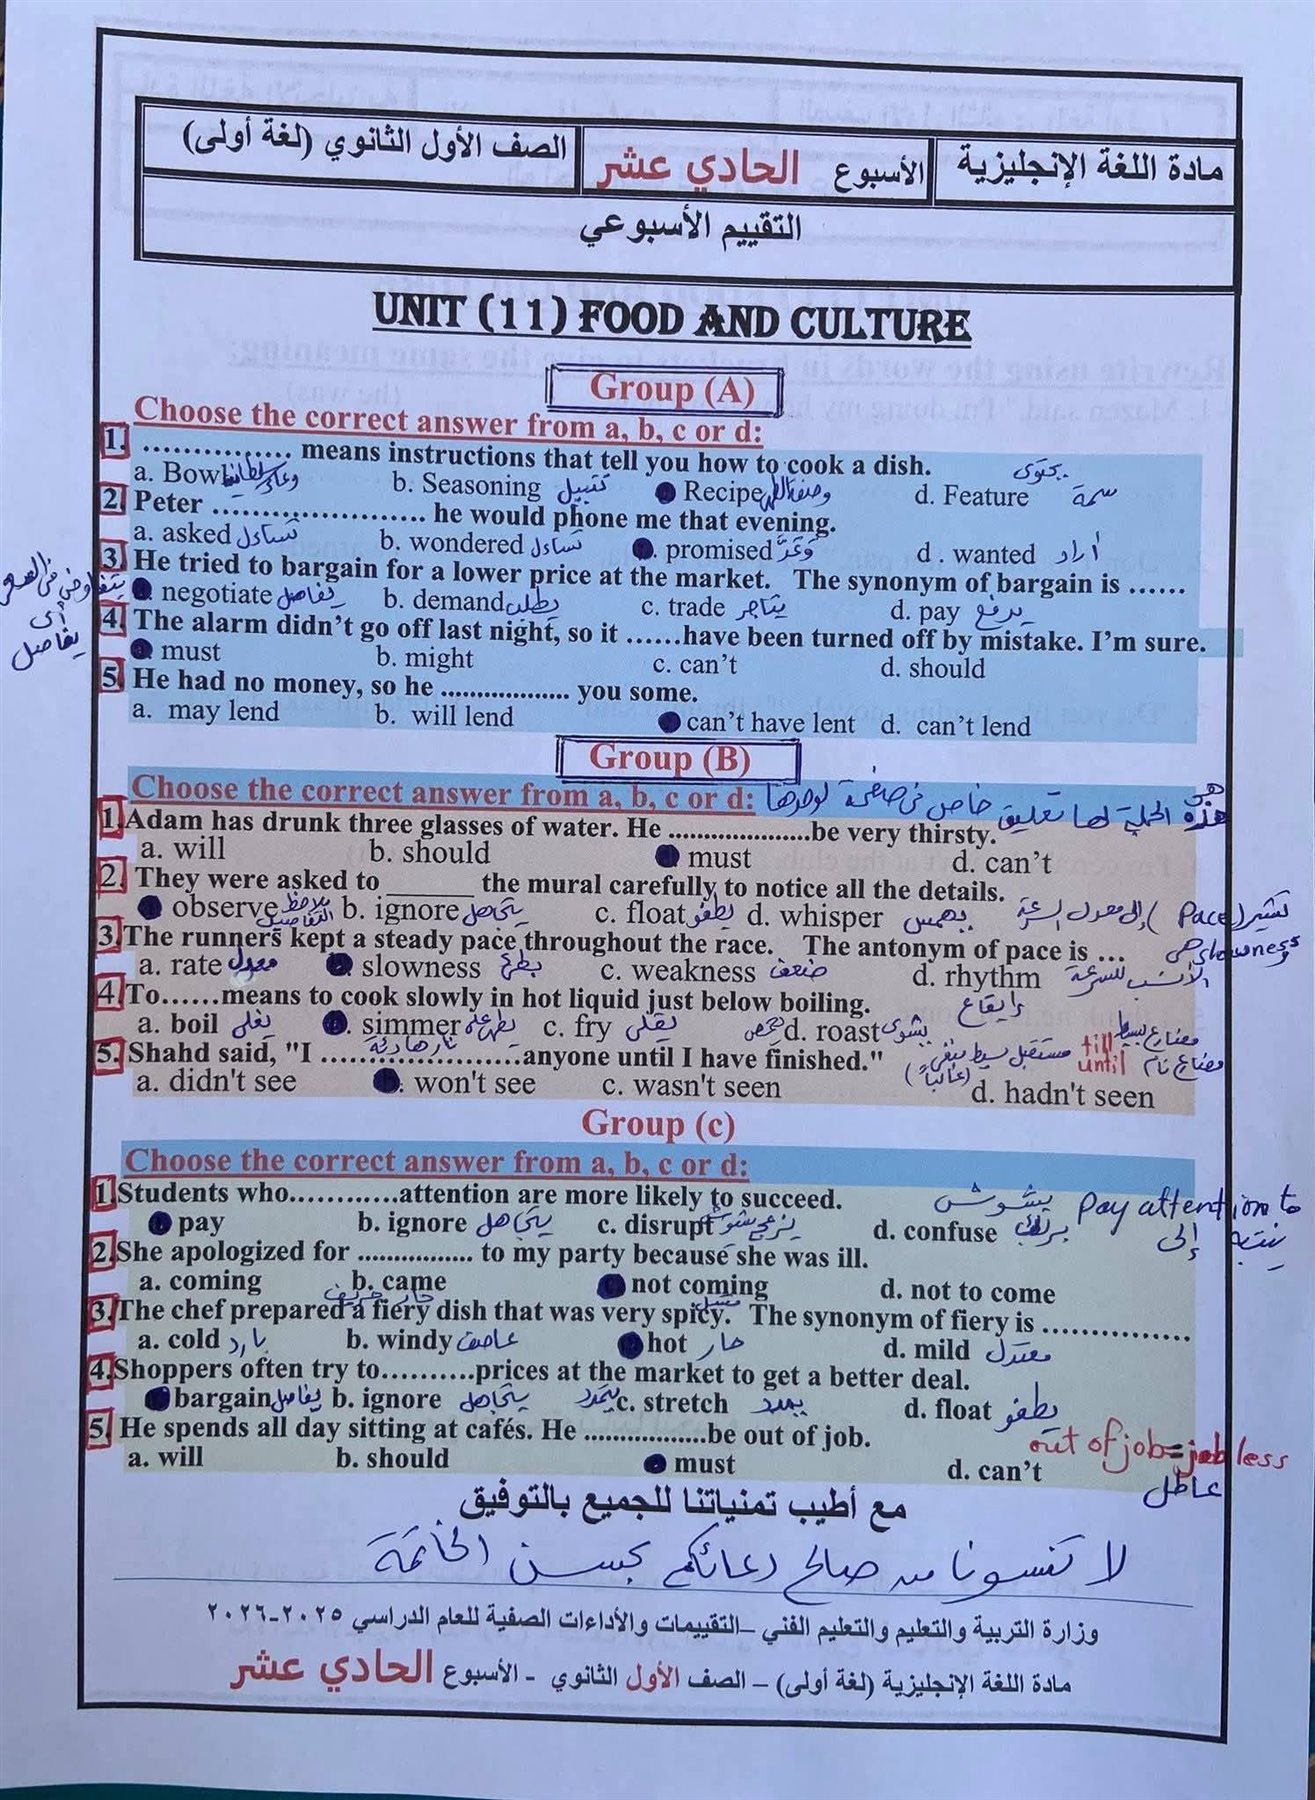 مادة اللغة الإنجليزية الأسبوع الحادي عشر الصف الأول الثانوي (لغة أولى)
التقييم الأسبوعي
UNIT (11) FOOD AND CULTURE
Group (A)
Choose the correct answer from a, b, c or d:
1. …………… means instructions that tell you how to cook a dish. يحتوى
a. Bowl b. Seasoning تتبيل Recipe وصفة الطهى d. Feature سمة
2. Peter ………………… he would phone me that evening.
a. asked تساءل b. wondered تساءل promised وَعَدَ d . wanted أراد
3. He tried to bargain for a lower price at the market. The synonym of bargain is ……
negotiate يفاصل b. demand يطلب c. trade يتاجر d. pay يدفع
يتفاوض فى السعر
أى
يفاصل
4. The alarm didn’t go off last night, so it ……have been turned off by mistake. I’m sure.
must b. might c. can’t d. should
5. He had no money, so he .................. you some.
a. may lend b. will lend can’t have lent d. can’t lend
Group (B)
Choose the correct answer from a, b, c or d: هذه الجملة لها تعليق خاص فى صفحة لوحدها
1. Adam has drunk three glasses of water. He .....................be very thirsty.
a. will b. should must d. can’t
2. They were asked to ______ the mural carefully to notice all the details.
observe يلاحظ التفاصيل b. ignore يتجاهل c. float يطفو d. whisper يهمس تشير (Pace) إلى معدل السرعة
3. The runners kept a steady pace throughout the race. The antonym of pace is … slowness هى
a. rate معدل slowness بطء c. weakness ضعف d. rhythm الأنسب للسرعة
4. To……means to cook slowly in hot liquid just below boiling. إيقاع
a. boil يغلى simmer يطهو على نار هادئة c. fry يقلى يحمص d. roast يشوى
5. Shahd said, "I …………………anyone until I have finished." مستقبل بسيط منفى (غالباً) till until مضارع بسيط مضارع تام
a. didn't see won't see c. wasn't seen d. hadn't seen
Group (c)
Choose the correct answer from a, b, c or d:
1. Students who…………attention are more likely to succeed. يشوش pay attention to
pay b. ignore يتجاهل c. disrupt يزعج يشوش d. confuse يربك ينتبه إلى
2. She apologized for ................. to my party because she was ill.
a. coming b. came not coming d. not to come
3. The chef prepared a fiery dish that was very spicy. The synonym of fiery is ……………
a. cold بارد b. windy عاصف hot حار d. mild معتدل
4. Shoppers often try to……….prices at the market to get a better deal.
bargain يفاصل b. ignore يتجاهل يتمدد c. stretch يمدد d. float يطفو
5. He spends all day sitting at cafés. He ..................be out of job. out of job = jobless
a. will b. should must d. can’t عاطل
مع أطيب تمنياتنا للجميع بالتوفيق
لا تنسونا من صالح دعائكم بحسن الخاتمة
وزارة التربية والتعليم والتعليم الفني –التقييمات والأداءات الصفية للعام الدراسي ٢٠٢٥-٢٠٢٦
مادة اللغة الإنجليزية (لغة أولى) – الصف الأول الثانوي - الأسبوع الحادي عشر